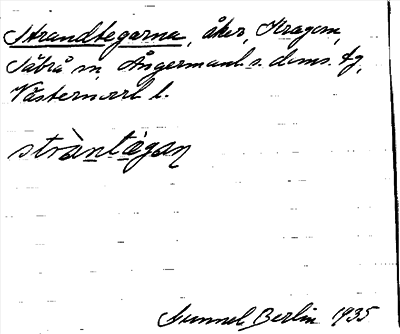 Strandtegarna, åker, Kragom,
Säbrå sn, Ångermanl. s. doms. fg,
Västernorrl. l.
stràntä̀gan
Gunnel Berlin 1935